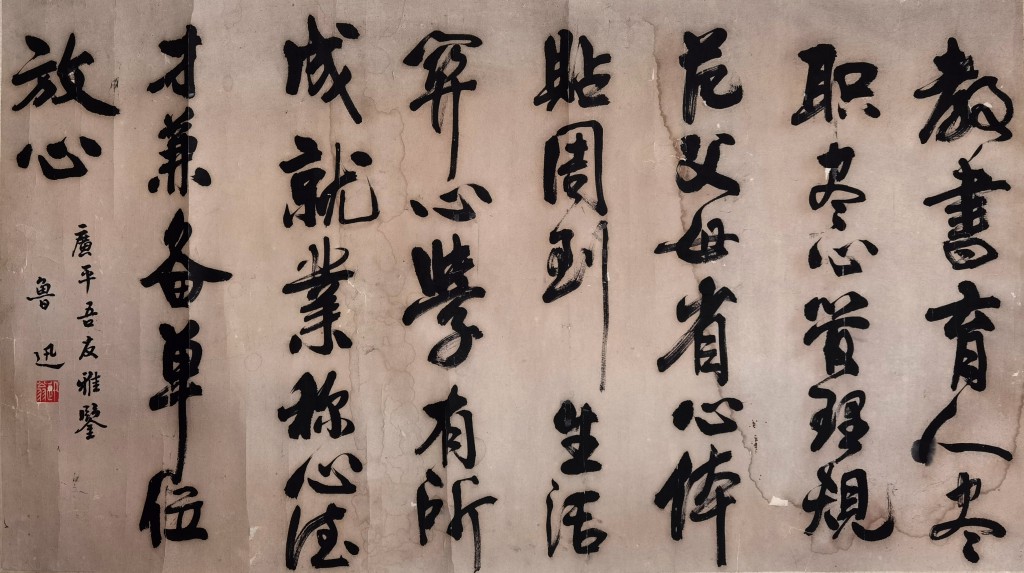 教書育人尽
职尽心管理規
范父母省心体
貼周到 生活
心學有所
成就業称心德
才兼备单位
放心
廣平吾友雅鑒
魯迅